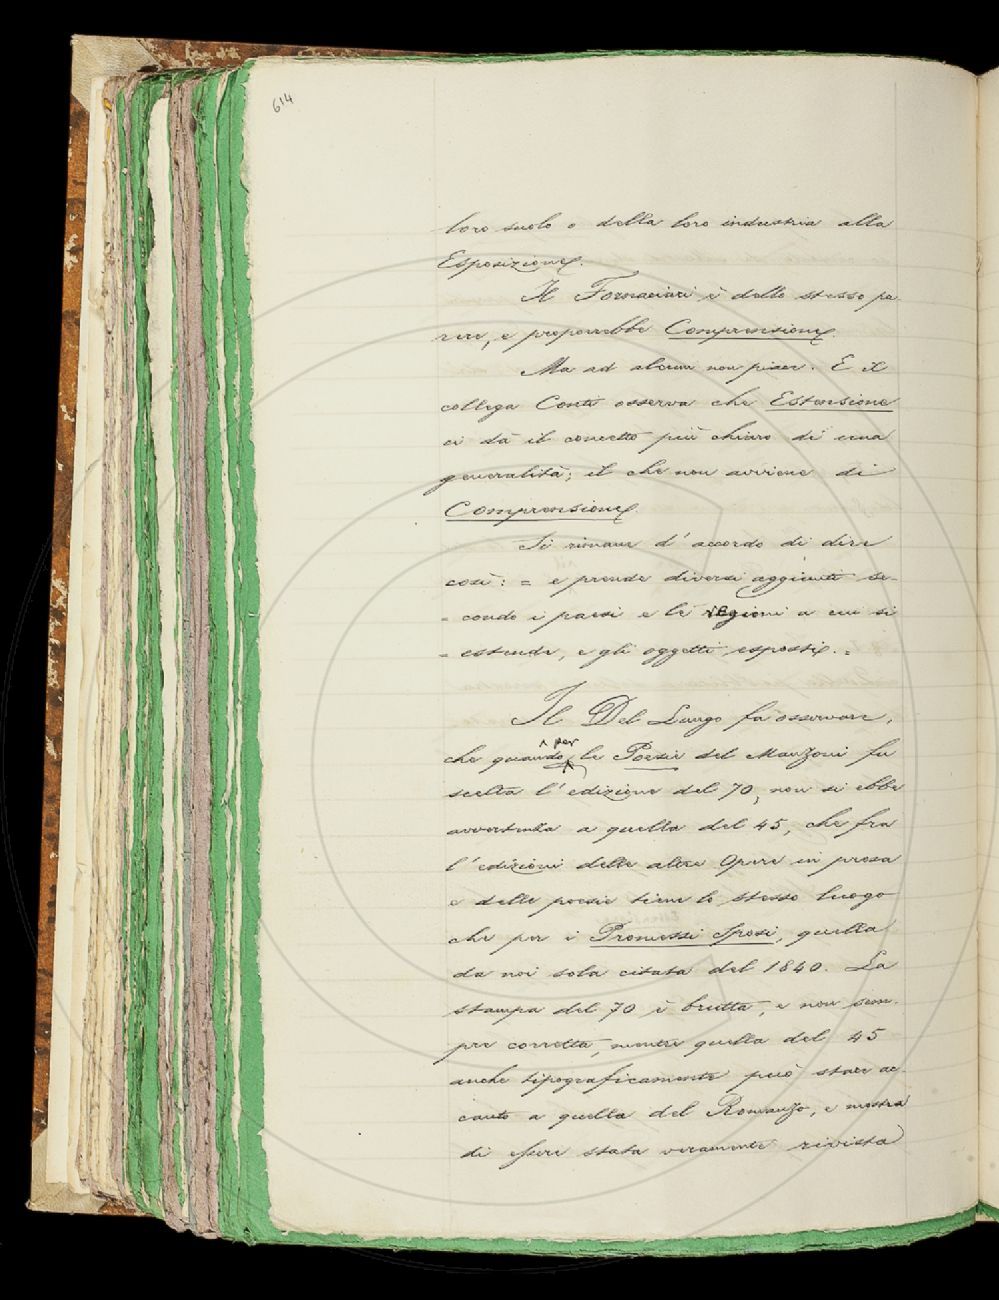 614
loro suolo o della loro industria alla
Esposizione.
Il Fornaciari è dello stesso pa
rere, e proporrebbe Comprensione.
Ma ad alcuni non piace. E il
collega Conti osserva che Estensione
ci dà il concetto più chiaro di una
generalità; il che non avviene di
Comprensione.
Si rimane d'accordo di dire
così: = e prende diversi aggiunti se-
- condo i paesi e le regioni a cui si
- estende, e gli oggetti esposti. =
Il Del Lungo fa osservare,
che quando per le Poesie del Manzoni fu
scelta l'edizione del 70, non si ebbe
avvertenza a quella del 45, che fra
l'edizioni delle altre Opere in prosa
e delle poesie tiene lo stesso luogo
che per i Promessi Sposi, quella
da noi sola citata del 1840. La
stampa del 70 è brutta, e non sem-
pre corretta, mentre quella del 45
anche tipograficamente può stare ac-
canto a quella del Romanzo, e mostra
di essere stata veramente rivista